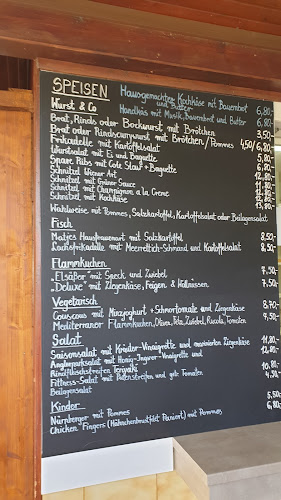 SPEISEN
Hausgemachter Kochkäse mit Bauernbrot
und Butter 6,80.-
Handkäs mit Musik, Bauernbrot und Butter 6,80.-
Wurst & Co
Brat, Rinds oder Bockwurst mit Brötchen 3,50.-
Brat oder Rindscurrywurst mit Brötchen/Pommes 4,50/6,80.-
Frikadelle mit Kartoffelsalat
Wurstsalat mit Ei und Baguette
Spare Ribs mit Cole Slaw + Baguette
Schnitzel Wiener Art
Schnitzel mit Grüner Sauce
Schnitzel mit Champignon a la Creme
Schnitzel mit Kochkäse
Wahlweise mit Pommes, Salzkartoffel, Kartoffelsalat oder Beilagensalat
Fisch
Matjes Hausfrauenart mit Salzkartoffel 8,50.-
Lachsfrikadelle mit Meerrettich-Schmand und Kartoffelsalat 8,50.-
Flammkuchen
"Elsäßer" mit Speck und Zwiebel 7,50.-
"Deluxe" mit Ziegenkäse, Feigen & Wallnüssen 7,50.-
Vegetarisch
Couscous mit Minzjoghurt + Schmortomate und Ziegenkäse 8,70.-
Mediterraner Flammkuchen, Oliven, Feta, Zwiebel, Rucola, Tomaten 9,50.-
Salat
Saisonsalat mit Kräuter-Vinaigrette und mariniertem Ziegenkäse 11,80.-
mit Honig-Ingwer-Vinaigrette und 12,80.-
Rindfleischstreifen Teriyaki
Fittness-Salat mit Putenstreifen und geb. Tomaten 10,80.-
Beilagensalat
Kinder
Nürnberger mit Pommes 5,50.-
Chicken Fingers (Hähnchenbrustfilet Paniert) mit Pommes 6,80.-